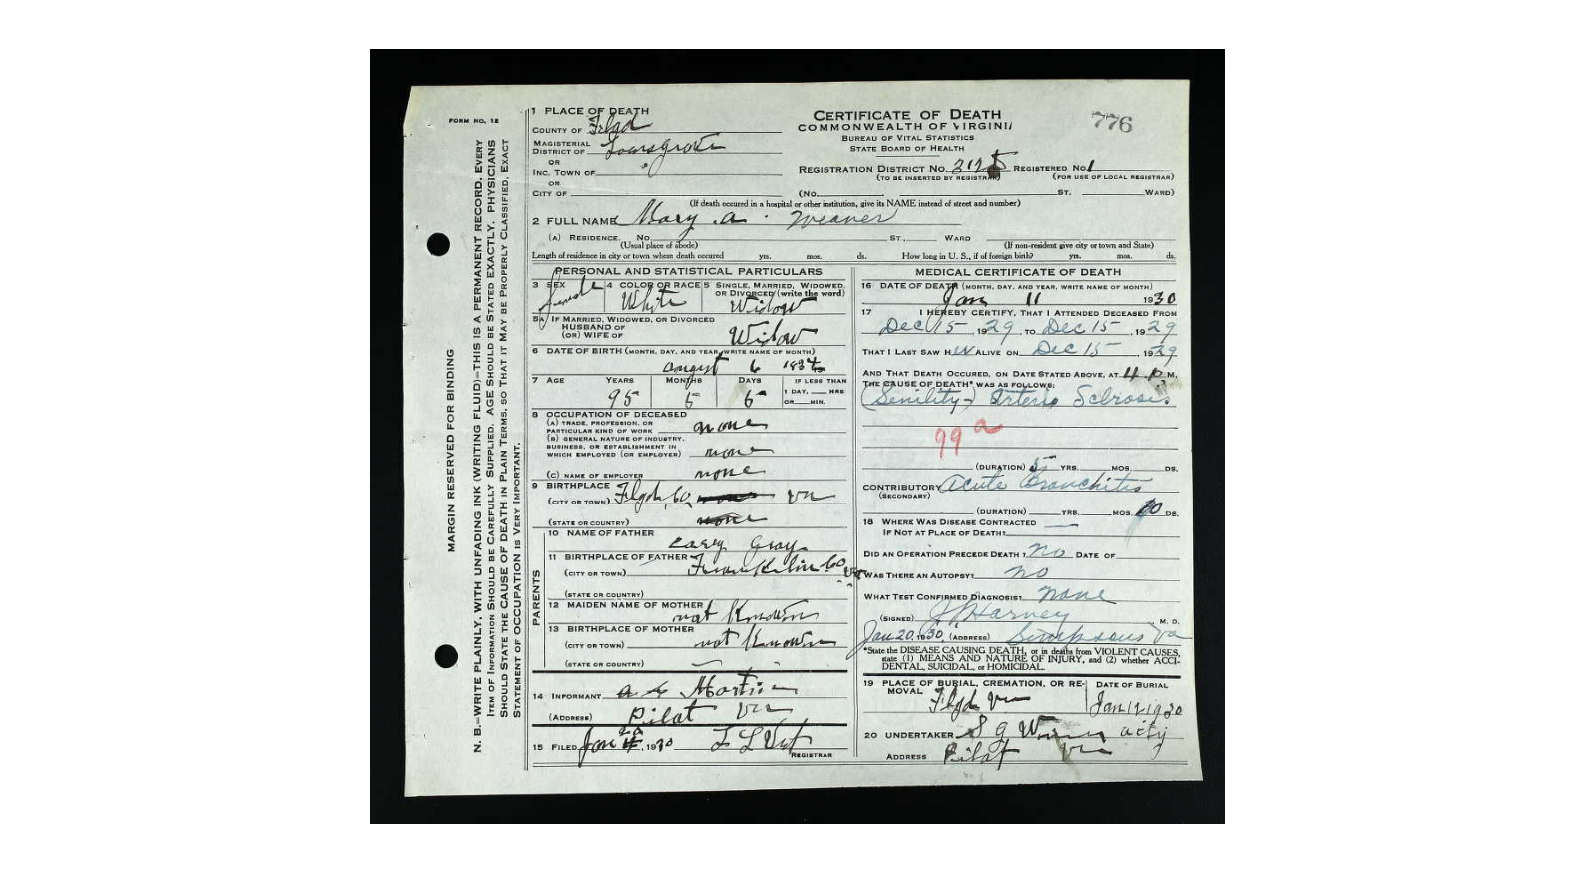 FORM NO. 12
MARGIN RESERVED FOR BINDING
N. B.—WRITE PLAINLY, WITH UNFADING INK (WRITING FLUID)—THIS IS A PERMANENT RECORD. EVERY
ITEM OF INFORMATION SHOULD BE CAREFULLY SUPPLIED. AGE SHOULD BE STATED EXACTLY. PHYSICIANS
SHOULD STATE THE CAUSE OF DEATH IN PLAIN TERMS, SO THAT IT MAY BE PROPERLY CLASSIFIED. EXACT
STATEMENT OF OCCUPATION IS VERY IMPORTANT.
1 PLACE OF DEATH
COUNTY OF Floyd
MAGISTERIAL
DISTRICT OF Locust grove
OR
INC. TOWN OF
OR
CITY OF
CERTIFICATE OF DEATH
COMMONWEALTH OF VIRGINIA
BUREAU OF VITAL STATISTICS
STATE BOARD OF HEALTH
776
REGISTRATION DISTRICT NO. 312 REGISTERED NO. 1
(TO BE INSERTED BY REGISTRAR) (FOR USE OF LOCAL REGISTRAR)
(NO. ST. WARD)
(If death occured in a hospital or other institution, give its NAME instead of street and number)
2 FULL NAME Mary a. Weaver
(A) RESIDENCE. NO. ST., WARD
(Usual place of abode) (If non-resident give city or town and State)
Length of residence in city or town where death occured yrs. mos. ds. How long in U. S., if of foreign birth? yrs. mos. ds.
PERSONAL AND STATISTICAL PARTICULARS
3 SEX 4 COLOR OR RACE 5 SINGLE, MARRIED, WIDOWED,
OR DIVORCED (write the word)
Female White Widow
5A IF MARRIED, WIDOWED, OR DIVORCED
HUSBAND OF
(OR) WIFE OF Widow
6 DATE OF BIRTH (MONTH, DAY, AND YEAR, WRITE NAME OF MONTH)
august 6 1834
7 AGE YEARS MONTHS DAYS IF LESS THAN
95 5 5 1 DAY, HRS
OR MIN.
8 OCCUPATION OF DECEASED
(A) TRADE, PROFESSION, OR
PARTICULAR KIND OF WORK none
(B) GENERAL NATURE OF INDUSTRY,
BUSINESS, OR ESTABLISHMENT IN
WHICH EMPLOYED (OR EMPLOYER) none
(C) NAME OF EMPLOYER none
9 BIRTHPLACE
(CITY OR TOWN) Floyd Co. none va
(STATE OR COUNTRY) none
PARENTS
10 NAME OF FATHER
Gray
11 BIRTHPLACE OF FATHER
(CITY OR TOWN) Franklin Co va
(STATE OR COUNTRY)
12 MAIDEN NAME OF MOTHER
not Known
13 BIRTHPLACE OF MOTHER
(CITY OR TOWN) not Known
(STATE OR COUNTRY)
14 INFORMANT Martin
(ADDRESS) Pilot Va
15 FILED Jan 20, 1930
REGISTRAR
MEDICAL CERTIFICATE OF DEATH
16 DATE OF DEATH (MONTH, DAY, AND YEAR, WRITE NAME OF MONTH)
Jan 11 1930
17 I HEREBY CERTIFY, THAT I ATTENDED DECEASED FROM
Dec 15, 1929 TO Dec 15, 1929
THAT I LAST SAW HER ALIVE ON Dec 15, 1929
AND THAT DEATH OCCURED, ON DATE STATED ABOVE, AT 4 P. M.
THE CAUSE OF DEATH* WAS AS FOLLOWS:
(Senility) Arterio Sclrosis
99 a
(DURATION) 5 YRS. MOS. DS.
CONTRIBUTORY Acute Bronchitis
(SECONDARY)
(DURATION) YRS. MOS. 10 DS.
18 WHERE WAS DISEASE CONTRACTED
IF NOT AT PLACE OF DEATH?
DID AN OPERATION PRECEDE DEATH? no DATE OF
WAS THERE AN AUTOPSY? no
WHAT TEST CONFIRMED DIAGNOSIS? none
(SIGNED) Harvey M. D.
Jan 20, 1930, (ADDRESS) Simpsons Va
*State the DISEASE CAUSING DEATH, or in deaths from VIOLENT CAUSES,
state (1) MEANS AND NATURE OF INJURY, and (2) whether ACCI-
DENTAL, SUICIDAL, or HOMICIDAL.
19 PLACE OF BURIAL, CREMATION, OR RE-
MOVAL DATE OF BURIAL
Floyd Va Jan 12 1930
20 UNDERTAKER S G
ADDRESS Pilot Va